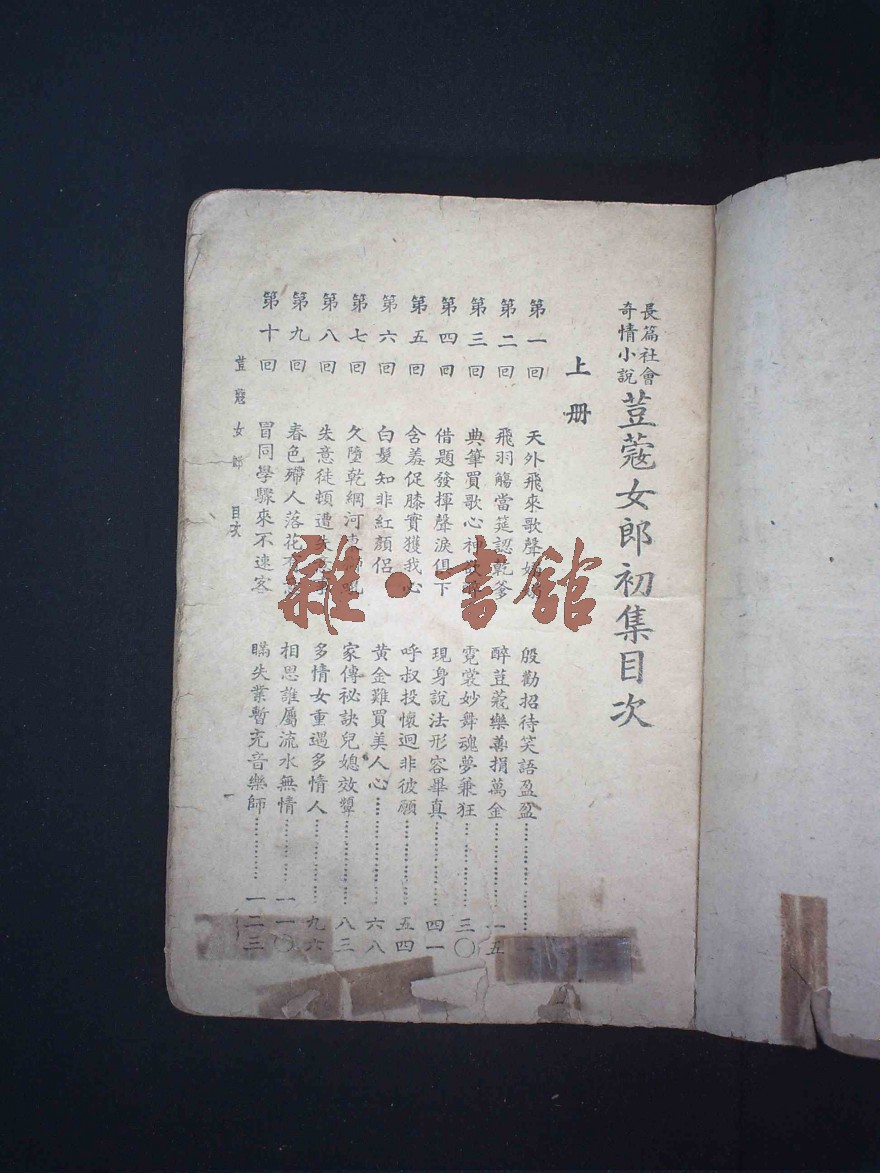 長篇社會
奇情小說
荳蔻女郎初集目次
上册
第一回 天外飛來歌聲 殷勸招待笑語盈盈 一
第二回 飛羽觴當筵認乾爹 醉荳蔻樂善捐萬金 一五
第三回 典筆買歌心神 霓裳妙舞魂夢兼狂 三〇
第四回 借題發揮聲淚俱下 現身說法形容畢真 四一
第五回 含羞促膝實獲我心 呼叔投懷迥非彼願 五四
第六回 白髮知非紅顏侶 黃金難買美人心 六八
第七回 久墮乾綱河 吼 家傳祕訣兒媳效顰 八三
第八回 失意徒頓遭失意 多情女重遇多情人 九六
第九回 春色殢人落花有 相思誰屬流水無情 一一〇
第十回 冒同學驟來不速客 瞞失業暫充音樂師 一二三
荳蔻女郎 目次
雜·書館